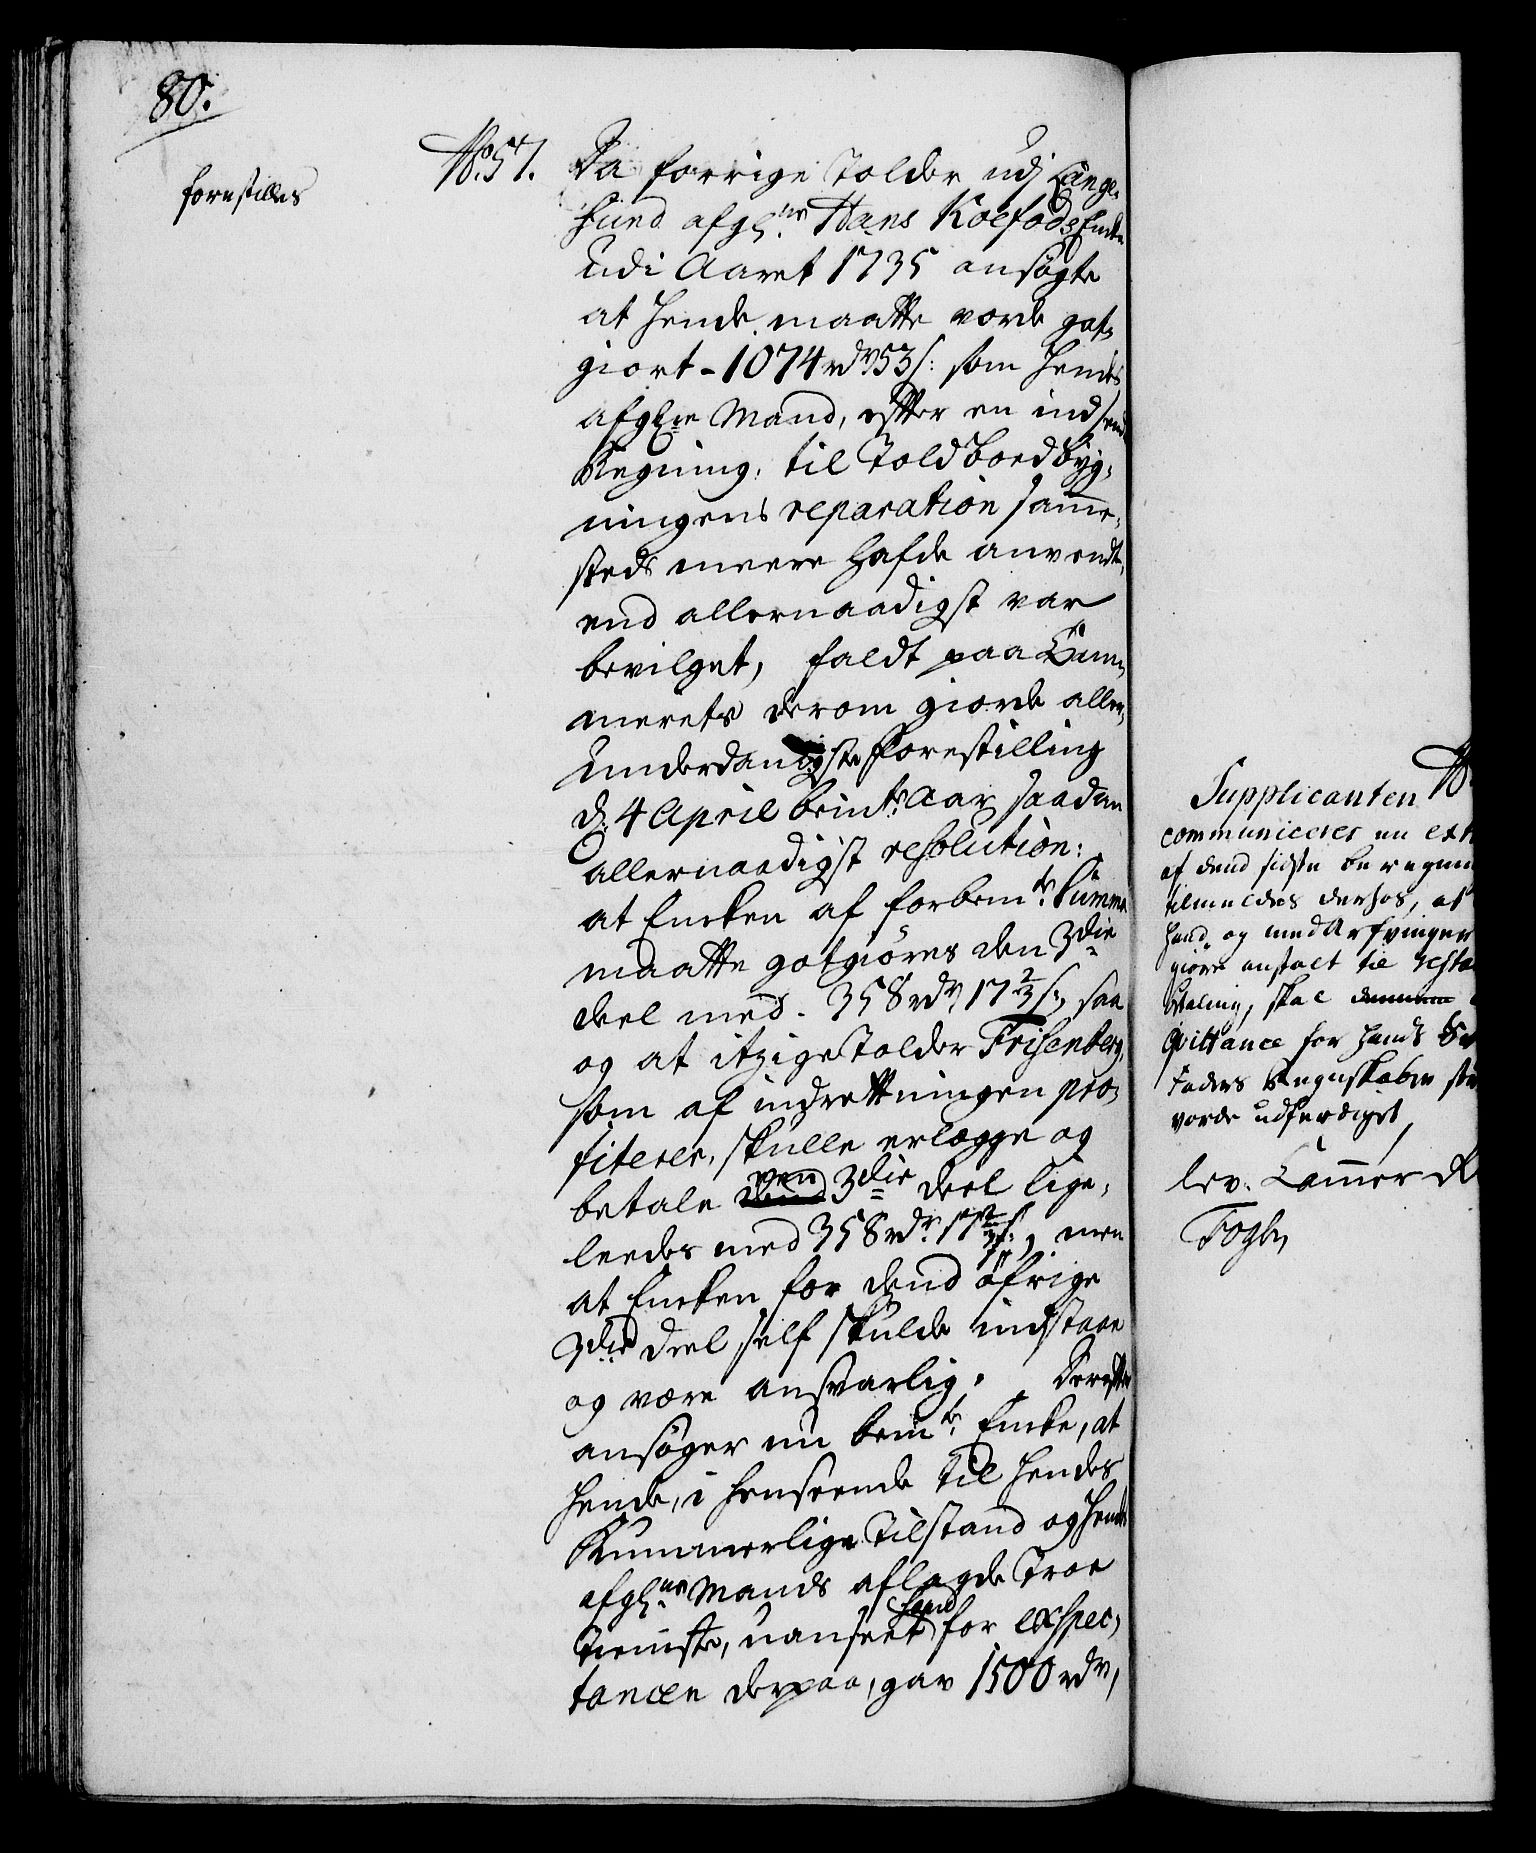 80.
forestilles
No. 57. Da forrige Tolder udj Lange-
sund afgl:ne Hans Koefods Encke
udi Aaret 1735 ansøgte
at hende maatte vorde got-
giort - 1074 rdr 53 s: som hendes
afgl:ne Mand, efter en indsendt
Regning, til Toldboedbyg-
ningens reparation samme-
steds meere hafde anvendt,
end allernaadigst var
bevilget, faldt paa Cam-
merets derom giorde aller-
underdanigste Forestilling
d: 4 April bem:te Aar saadan
allernaadigst resolution:
at Encken af forbem:te Summa
maatte gotgiøres den 3die
deel med - 358 rdr 17 2/3 s:, saa
og at itzige Tolder Frisenberg,
som af indrettningen pro-
fiterer, skulle erlægge og
betale den 3die deel lige-
leedes med 358 rdr 17 2/3 s:, men
at Encken for dend øfrige
3die deel self skulde indstaae
og være ansvarlig. Derefter
ansøger nu bem:te Encke, at
hende, i henseende til hendes
Kummerlige Tilstand og hendes
afgl:ne Mands aflagde Troe
Tieniste, uanseet hand for exspec-
tancen derpaa, gav 1500 rdr,
Supplicanten
communiceres en
af dend sidste
tilmeldes derhos, at
hand og medArfvinger
giøre anstalt til
betaling, skal
Qvittance for hands
Faders Regnskaber
vorde udferdiget,
lev: Cammer
Fogh,